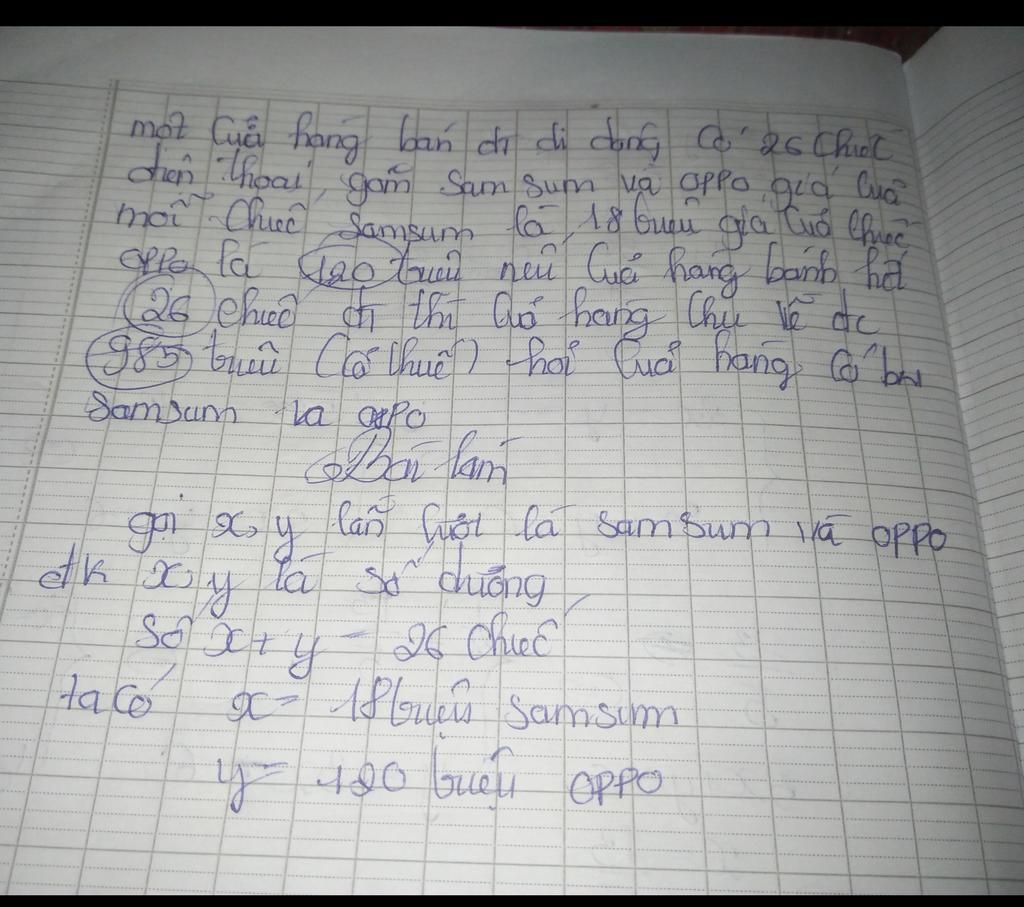 một Cuả hàng bán đt di dộng Có 26 Chiếc
điện thoại, gồm Samsum và OPPO giá Cuả
mỗi Chiếc Samsum là 18 triệu giá Cuả Chiếc
OPPO là 120 triệu nếu Cuả hàng bánh hết
26 Chiếc đt thì Cuả hàng thu về đc
985 triệu (Có thuế) hỏi Cuả hàng Có bn
Samsum và OPPO
Bài làm
gọi x, y lần lượt là Samsum và OPPO
đk x, y là số dương
Số x + y = 26 Chiếc
ta có x = 18 triệu Samsum
y = 120 triệu OPPO